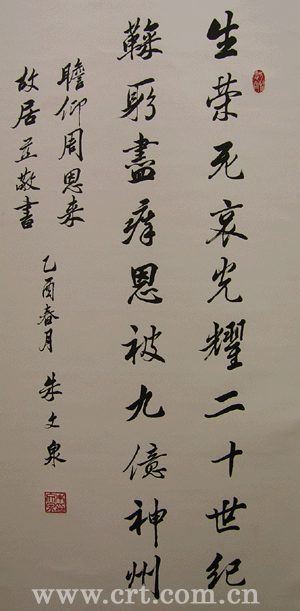 生荣死哀光耀二十世纪
鞠躬盡瘁恩被九億神州
瞻仰周恩来
故居并敬書
乙酉春月 朱文泉
www.crt.com.cn